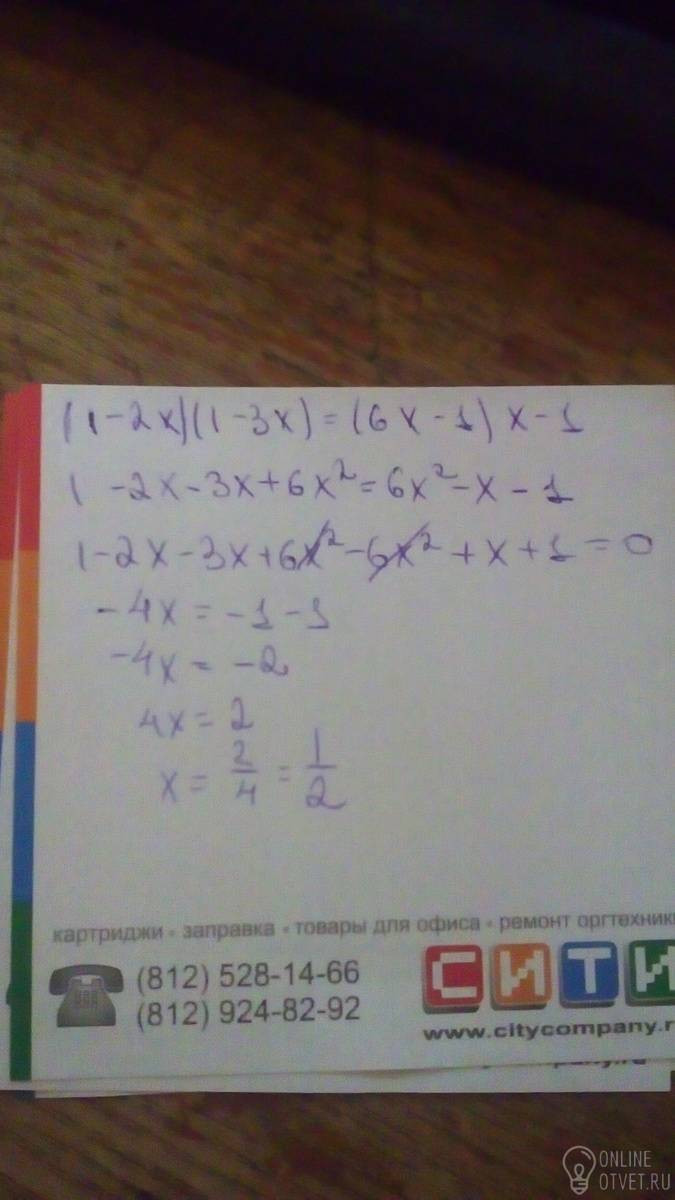 (1-2x)(1-3x)=(6x-1)x-1
1-2x-3x+6x²=6x²-x-1
1-2x-3x+6x²-6x²+x+1=0
-4x=-1-1
-4x=-2
4x=2
x=2/4=1/2
картриджи • заправка • товары для офиса • ремонт оргтехники
(812) 528-14-66
(812) 924-82-92
СИТИ
www.citycompany.r
ONLINE
OTVET.RU